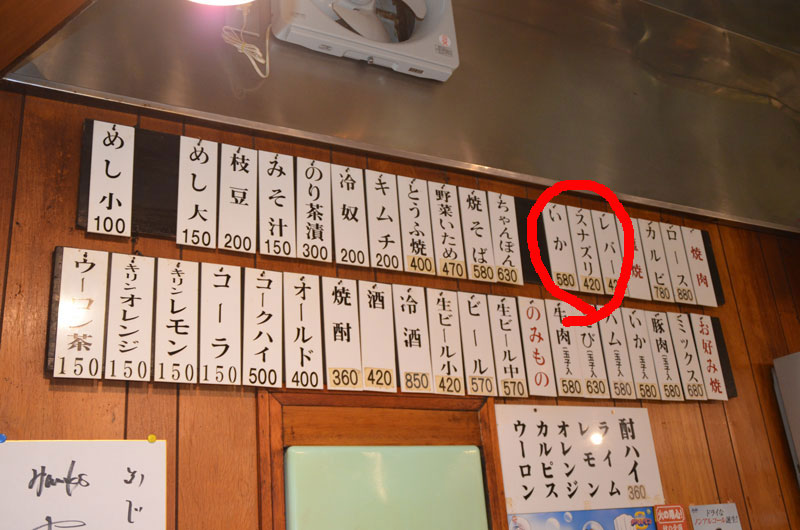 焼肉
ロース 880
カルビ 780
焼
レバー
スナズリ 420
いか 580
ちゃんぽん 630
焼そば 580
野菜いため 470
とうふ焼 400
キムチ 200
冷奴 200
のり茶漬 300
みそ汁 150
枝豆 200
めし大 150
めし小 100
お好み焼
ミックス 680
豚肉(玉子入) 580
いか(玉子入) 580
ハム(玉子入) 580
び(玉子入) 630
肉(玉子入) 580
のみもの
生ビール中 570
ビール 570
生ビール小 420
冷酒 850
酒 420
焼酎 360
オールド 400
コークハイ 500
コーラ 150
キリンレモン 150
キリンオレンジ 150
ウーロン茶 150
酎ハイ 360
ライム
レモン
オレンジ
カルピス
ウーロン
ドライな
ノンアルコール誕生!